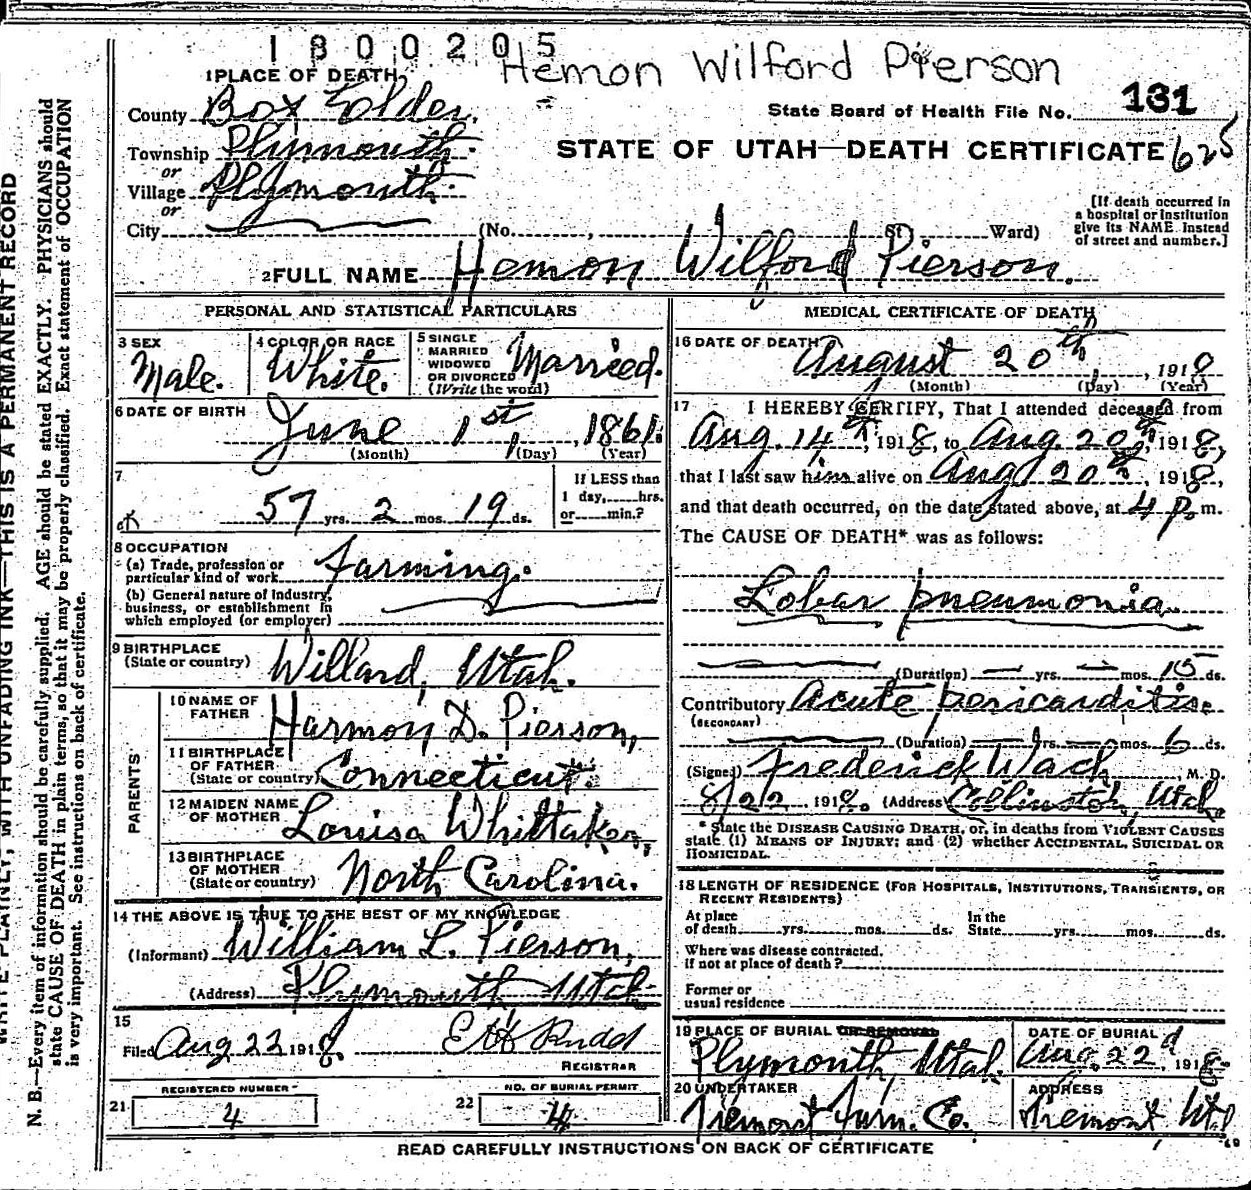 1800205
Hemon Wilford Pierson
1 PLACE OF DEATH
County Box Elder.
State Board of Health File No. 131
Township Plymouth.
or
STATE OF UTAH—DEATH CERTIFICATE 625
Village Plymouth.
or
City (No. , St. Ward)
[If death occurred in
a hospital or institution
give its NAME instead
of street and number.]
2 FULL NAME Hemon Wilford Pierson.
PERSONAL AND STATISTICAL PARTICULARS
3 SEX
Male.
4 COLOR OR RACE
White.
5 SINGLE
MARRIED
WIDOWED
OR DIVORCED
(Write the word)
Married.
6 DATE OF BIRTH
June 1st, 1861.
(Month) (Day) (Year)
7
57 yrs. 2 mos. 19 ds.
If LESS than
1 day, hrs.
or min.?
8 OCCUPATION
(a) Trade, profession or
particular kind of work Farming.
(b) General nature of industry,
business, or establishment in
which employed (or employer)
9 BIRTHPLACE
(State or country) Willard, Utah.
PARENTS
10 NAME OF
FATHER Harmon D. Pierson,
11 BIRTHPLACE
OF FATHER
(State or country) Connecticut.
12 MAIDEN NAME
OF MOTHER Louisa Whittaker,
13 BIRTHPLACE
OF MOTHER
(State or country) North Carolina.
14 THE ABOVE IS TRUE TO THE BEST OF MY KNOWLEDGE
(Informant) William L. Pierson,
(Address) Plymouth Utah.
15
Filed Aug 22 1918. Rudd
REGISTRAR
REGISTERED NUMBER
21 4
NO. OF BURIAL PERMIT
22 4
MEDICAL CERTIFICATE OF DEATH
16 DATE OF DEATH
August 20th, 1918
(Month) (Day) (Year)
17 I HEREBY CERTIFY, That I attended deceased from
Aug. 14th, 1918, to Aug. 20th, 1918,
that I last saw him alive on Aug 20th, 1918,
and that death occurred, on the date stated above, at 4 p. m.
The CAUSE OF DEATH* was as follows:
Lobar pneumonia.
(Duration) — yrs. — mos. 15 ds.
Contributory Acute pericarditis.
(SECONDARY)
(Duration) — yrs. — mos. 6 ds.
(Signed) Frederick Wach, M. D.
8/22 1918. (Address) Collinston, Utah.
* State the DISEASE CAUSING DEATH, or, in deaths from VIOLENT CAUSES
state (1) MEANS OF INJURY; and (2) whether ACCIDENTAL, SUICIDAL OR
HOMICIDAL.
18 LENGTH OF RESIDENCE (FOR HOSPITALS, INSTITUTIONS, TRANSIENTS, OR
RECENT RESIDENTS)
At place
of death yrs. mos. ds.
In the
State yrs. mos. ds.
Where was disease contracted,
if not at place of death?
Former or
usual residence
19 PLACE OF BURIAL OR REMOVAL
Plymouth, Utah.
DATE OF BURIAL
Aug. 22d, 1918.
20 UNDERTAKER
Tremont Furn. Co.
ADDRESS
Tremont Utah
READ CAREFULLY INSTRUCTIONS ON BACK OF CERTIFICATE
WRITE PLAINLY, WITH UNFADING INK—THIS IS A PERMANENT RECORD
N. B.—Every item of information should be carefully supplied. AGE should be stated EXACTLY. PHYSICIANS should
state CAUSE OF DEATH in plain terms, so that it may be properly classified. Exact statement of OCCUPATION
is very important. See instructions on back of certificate.